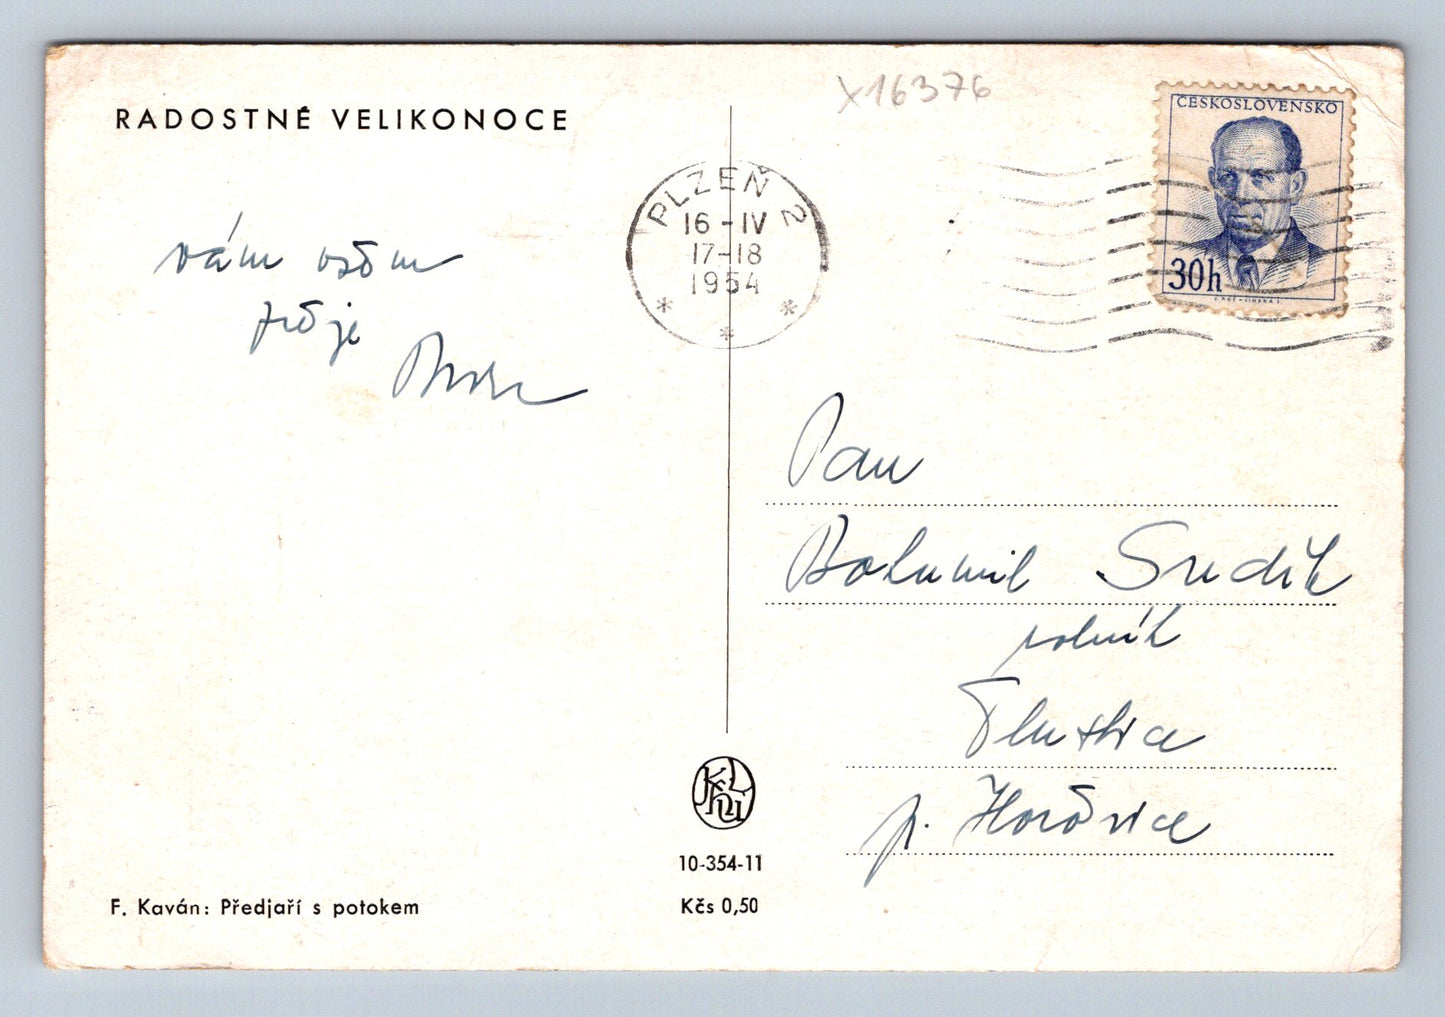 RADOSTNÉ VELIKONOCE
X16376
ČESKOSLOVENSKO
30h
PLZEŇ 2
16-IV
17-18
1954
vám všem
přeje
Pan
Bohumil Sudík
rolník
Tlustice
p. Hořovice
10-354-11
Kčs 0,50
F. Kaván: Předjaří s potokem